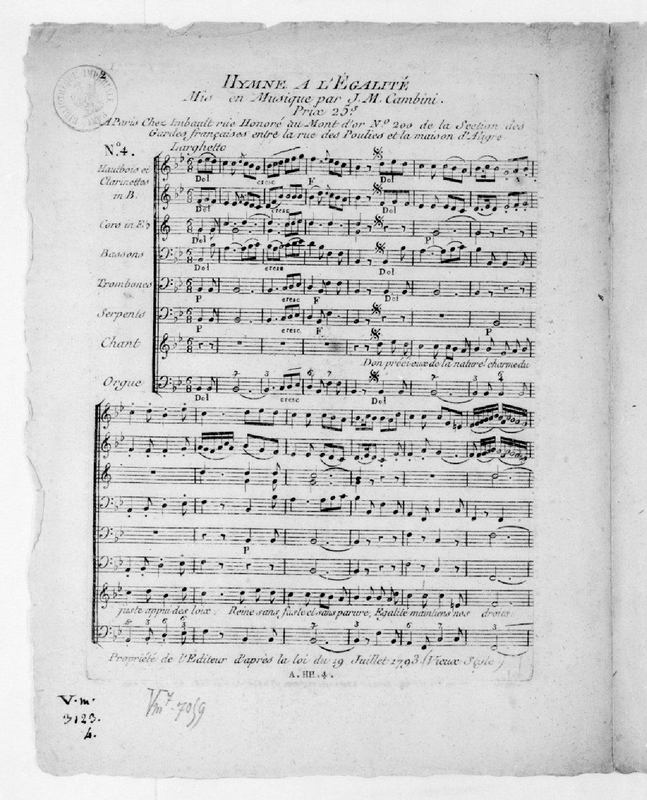 HYMNE A L'ÉGALITÉ
Mis en Musique par J. M. Cambini.
Prix 25s
A Paris Chez Imbault rue Honoré au Mont d'or No. 200 de la Section des
Gardes françaises entre la rue des Poulies et la maison d'Aligre
No. 4. Larghetto
Hautbois et
Clarinettes
in B.
Dol cresc F Dol
Dol cresc Dol
Cors in E♭
Dol P
Bassons
Dol cresc Dol
Trombones
P cresc F Dol
Serpents
P cresc F P
Chant
Don précieux de la nature! charme du
Orgue
Dol cresc Dol
P
juste appui des loix. Reine sans faste et sans parure, Egalité maintiens nos droits.
Propriété de l'Editeur d'après la loi du 19 Juillet 1793 (Vieux Style)
A. HH. 4.
V.m.
3123.
4.
Vm7. 7059